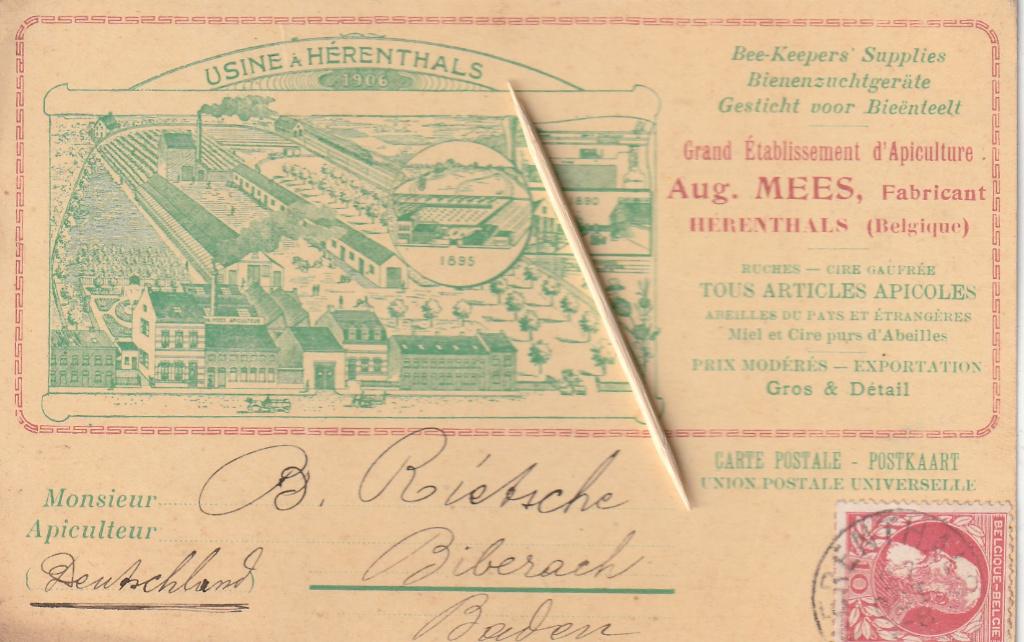 USINE À HÉRENTHALS
1906
1890
1895
Bee-Keepers' Supplies
Bienenzuchtgeräte
Gesticht voor Bieënteelt
Grand Établissement d'Apiculture
Aug. MEES, Fabricant
HÉRENTHALS (Belgique)
RUCHES — CIRE GAUFRÉE
TOUS ARTICLES APICOLES
ABEILLES DU PAYS ET ÉTRANGÈRES
Miel et Cire purs d'Abeilles
PRIX MODÉRÉS — EXPORTATION
Gros & Détail
CARTE POSTALE - POSTKAART
UNION POSTALE UNIVERSELLE
Monsieur B. Rietsche
Apiculteur
Biberach
(Deutschland)
Baden
BELGIQUE-BELGIE
10